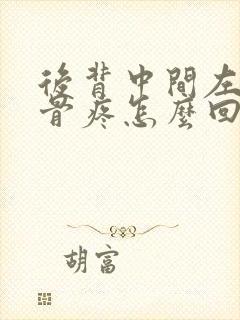 後背中間左
骨疼怎麼回
胡富